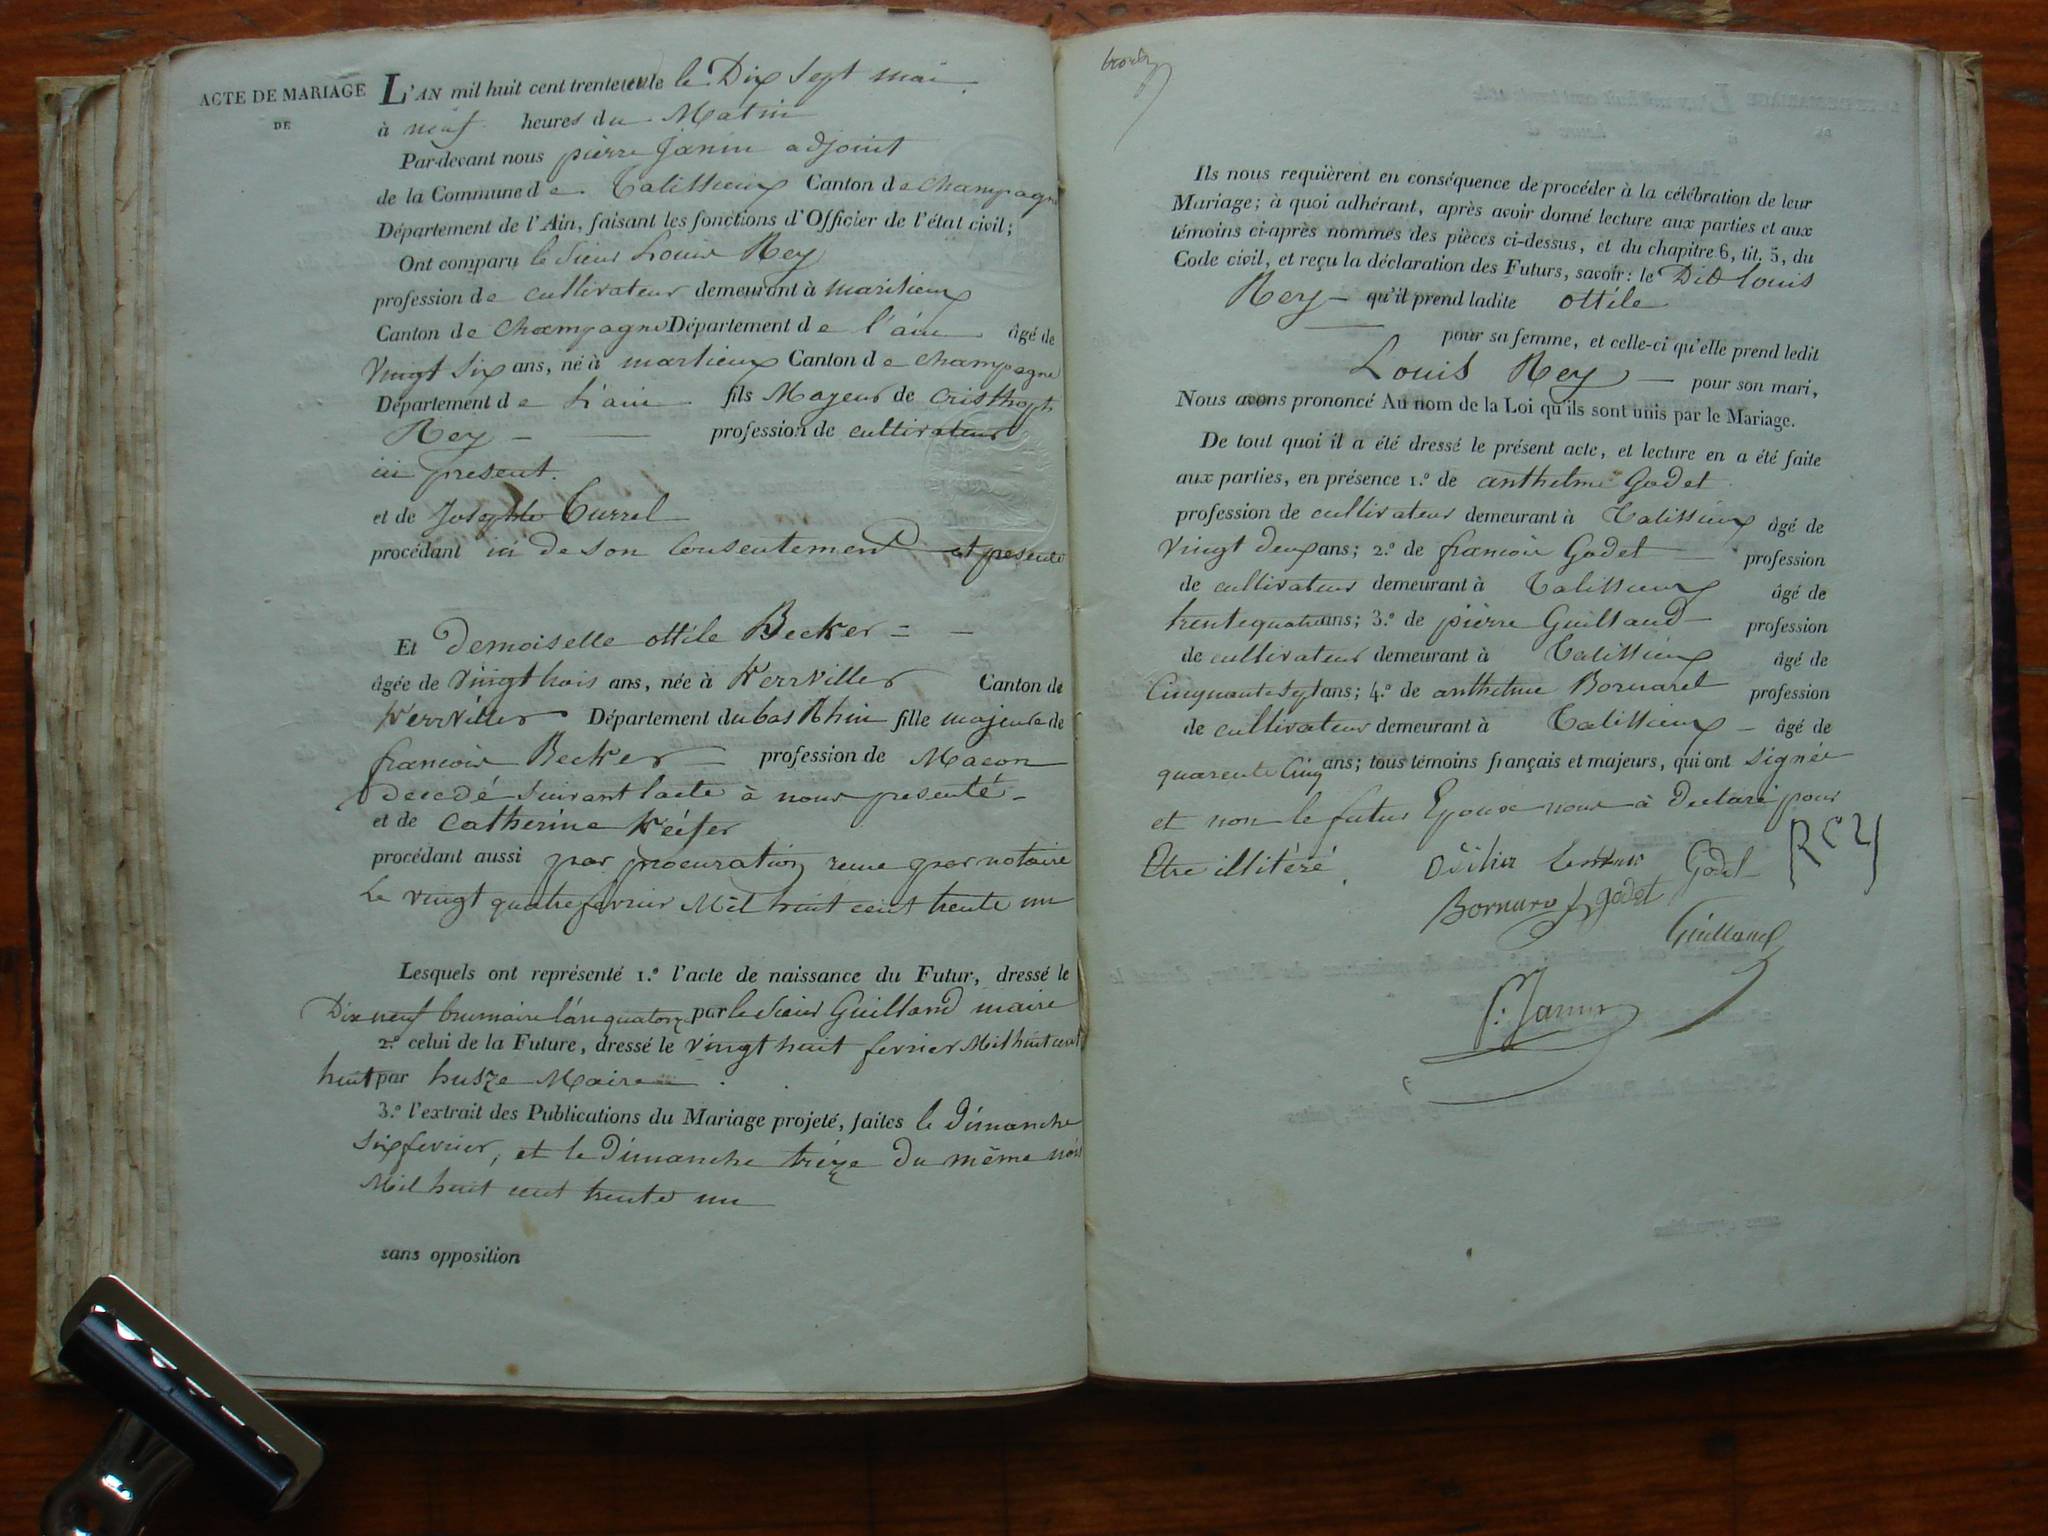 ACTE DE MARIAGE
DE
L'AN mil huit cent trente un le Dix Sept mai
à neuf heures du Matin
Par-devant nous pierre Janin adjoint
de la Commune de Talissieux Canton de champagne
Département de l'Ain, faisant les fonctions d'Officier de l'état civil;
Ont comparu le sieur Louis Rey
profession de cultivateur demeurant à
Canton de champagne Département de l'ain âgé de
Vingt Six ans, né à Canton de champagne
Département de L'ain fils Majeur de Cristhoph
Rey — profession de cultivateur
ici present.
et de Turrel
procédant ici de son Consentement et presence
Et Demoiselle ottile Becker = —
âgée de Vingt trois ans, née à Kerrviller Canton de
Kerrviller Département du bas Rhin fille majeure de
francois Becker — profession de Macon
décédé suivant lacte à nous presenté —
et de Catherine Kéifer
procédant aussi par procuration recue par notaire
Le vingt quatre fevrier Mil huit cent trente un
Lesquels ont représenté 1.º l'acte de naissance du Futur, dressé le
Dix neuf brumaire l'an quatorze par le sieur Guilland maire
2.º celui de la Future, dressé le vingt huit fevrier Mil huit cent
huit par husze Maire
3.º l'extrait des Publications du Mariage projeté, faites le Dimanche
Six fevrier, et le Dimanche trèze du même mois
Mil huit cent trente un
sans opposition
Ils nous requièrent en conséquence de procéder à la célébration de leur
Mariage; à quoi adhérant, après avoir donné lecture aux parties et aux
témoins ci-après nommés des pièces ci-dessus, et du chapitre 6, tit. 5, du
Code civil, et reçu la déclaration des Futurs, savoir: le Dit Louis
Rey — qu'il prend ladite ottile
— pour sa femme, et celle-ci qu'elle prend ledit
Louis Rey — pour son mari,
Nous avons prononcé Au nom de la Loi qu'ils sont unis par le Mariage.
De tout quoi il a été dressé le présent acte, et lecture en a été faite
aux parties, en présence 1.º de anthelme Godet
profession de cultivateur demeurant à Talissieux âgé de
Vingt deux ans; 2.º de francois Godet — profession
de cultivateur demeurant à Talissieux âgé de
trente quatre ans; 3.º de pierre Guilland — profession
de cultivateur demeurant à Talissieux âgé de
Cinquante Sept ans; 4.º de anthelme Bornarel profession
de cultivateur demeurant à Talissieux — âgé de
quarente Cinq ans; tous témoins français et majeurs, qui ont signée
et non le futur Epoux nous à declaré pour
Etre illitéré. Godet REY
Godet
Guilland
P. Janin